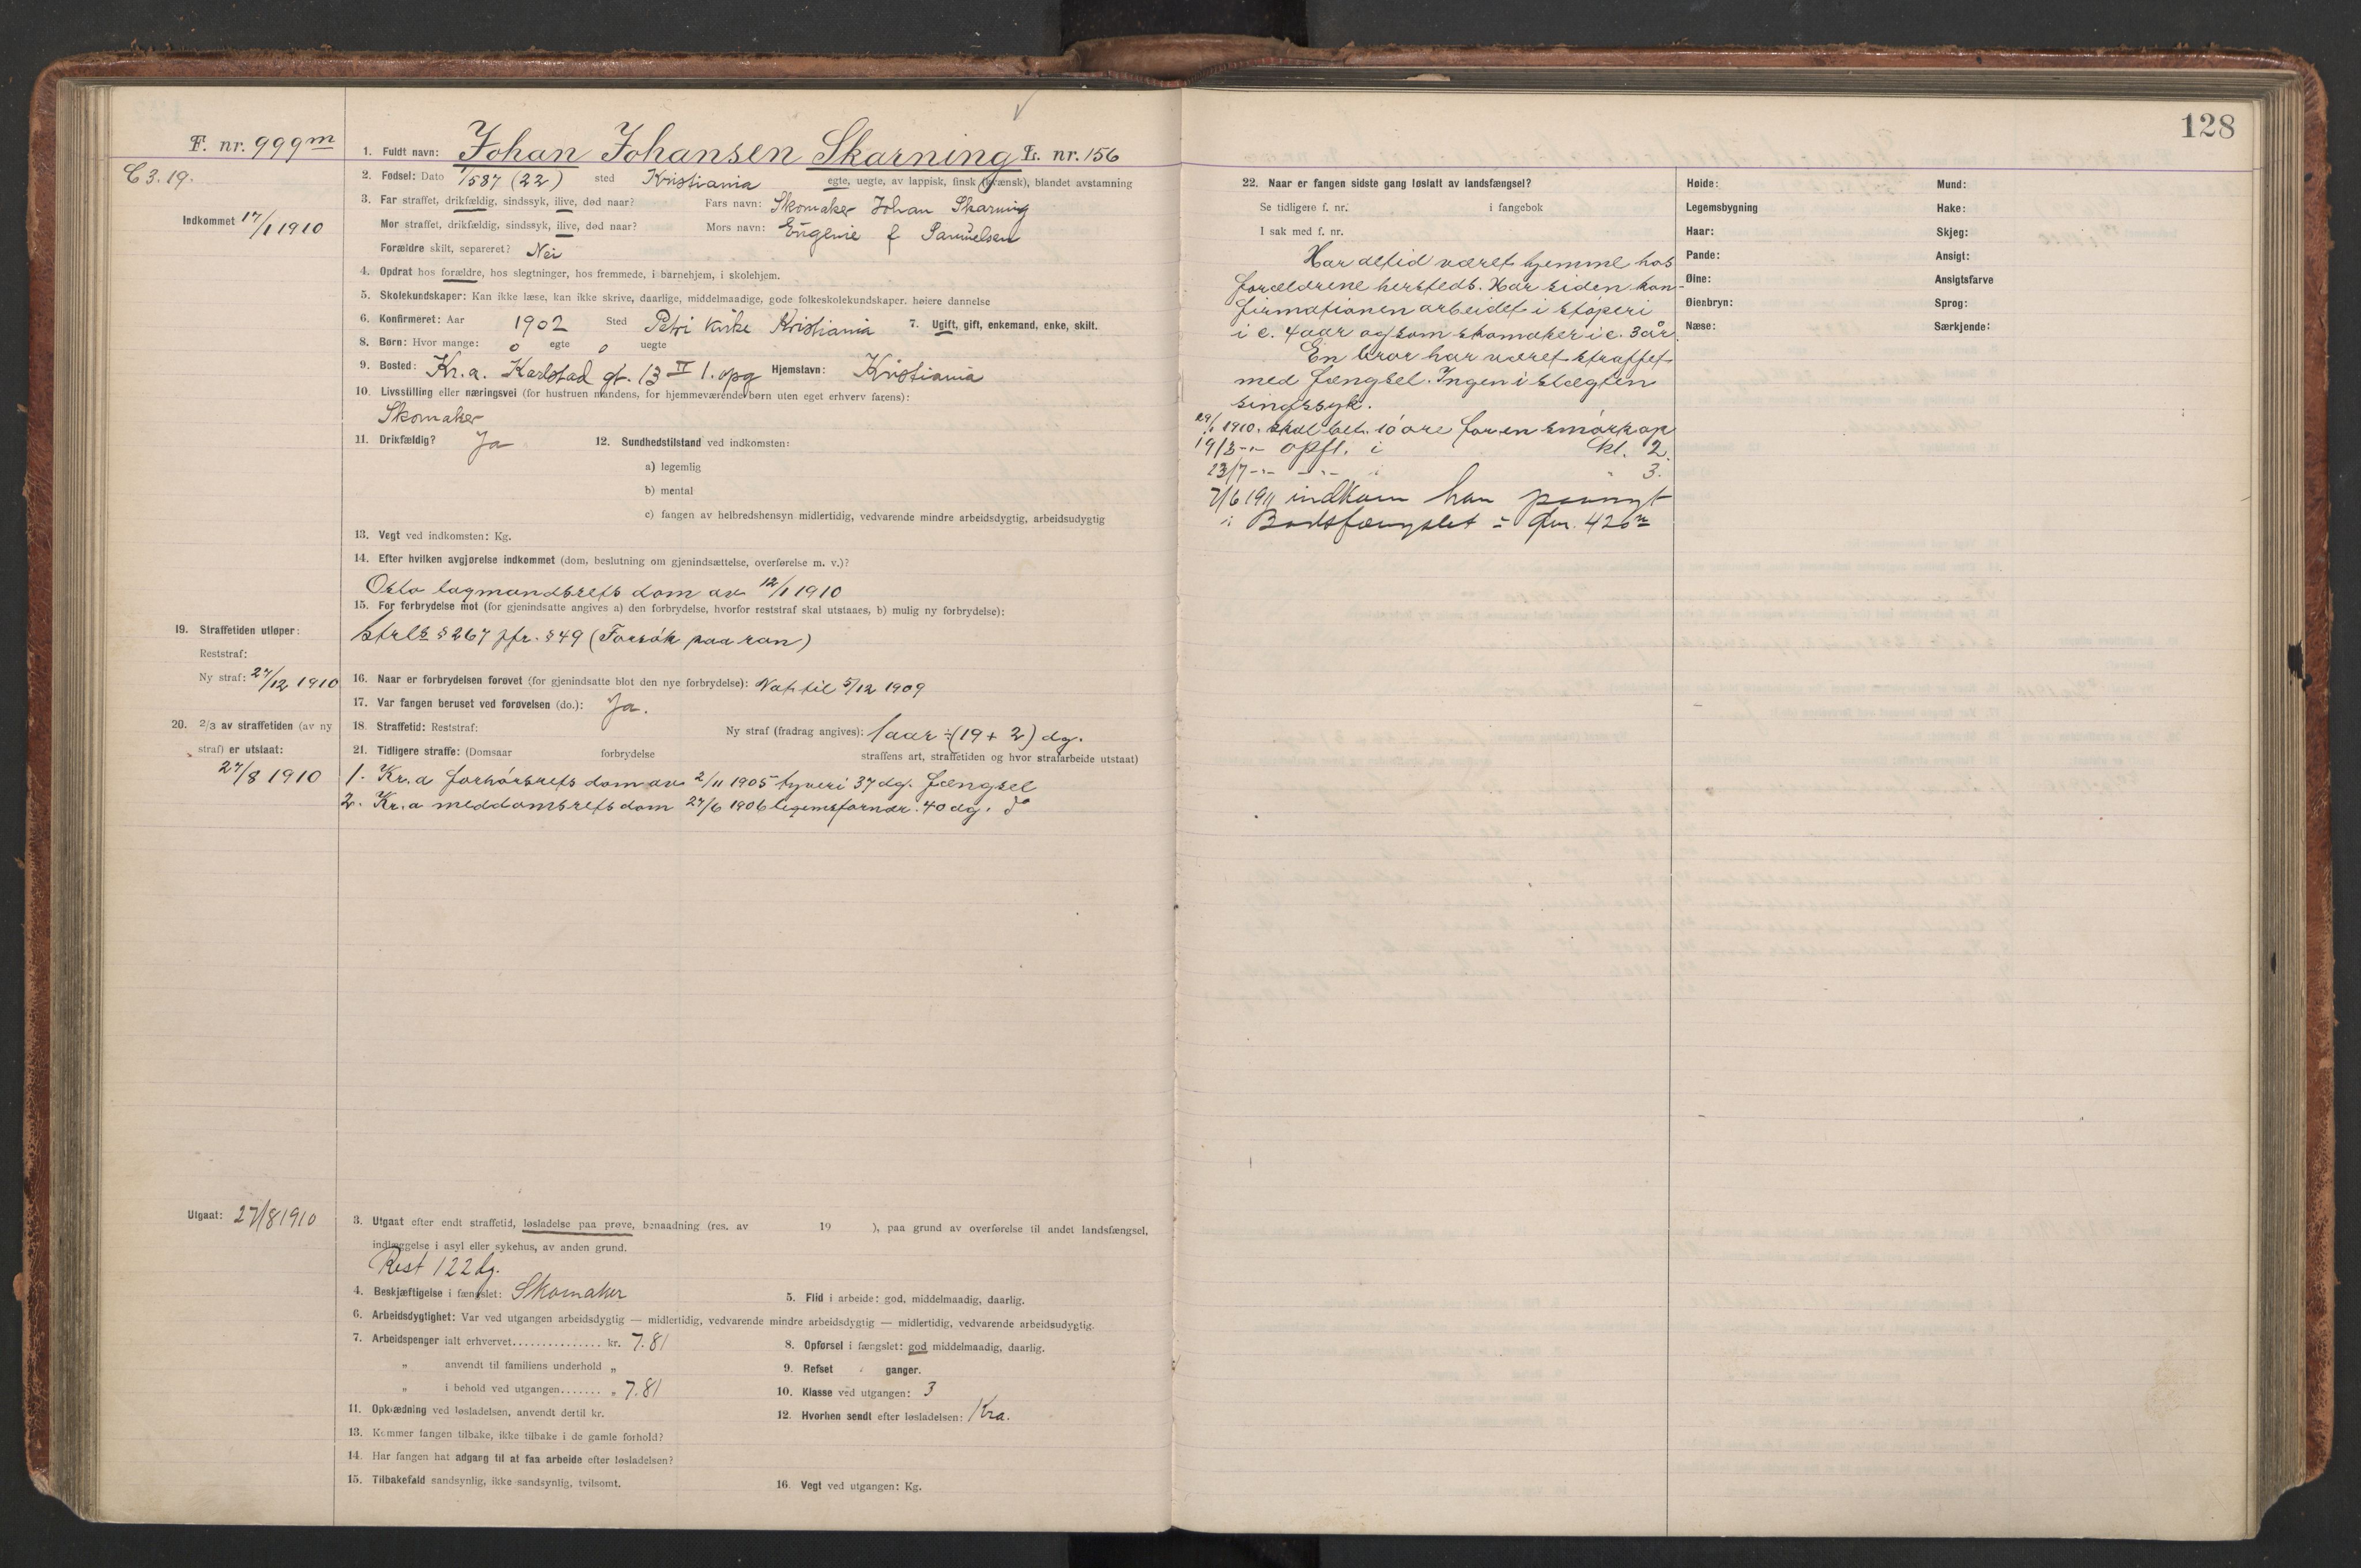 128
F. nr. 999m
1. Fuldt navn: Johan Johansen Skarning Fs. nr. 156
C 3. 19.
2. Fødsel: Dato 1/5 87 (22) sted Kristiania egte, uegte, av lappisk, finsk (kvænsk), blandet avstamning
Indkommet 17/1 1910
3. Far straffet, drikfældig, sindssyk, ilive, død naar? Fars navn: Skomaker Johan Skarning
Mor straffet, drikfældig, sindssyk, ilive, død naar? Mors navn: Eugenie f Samuelsen
Forældre skilt, separeret? Nei
4. Opdrat hos forældre, hos slegtninger, hos fremmede, i barnehjem, i skolehjem.
5. Skolekundskaper: Kan ikke læse, kan ikke skrive, daarlige, middelmaadige, gode folkeskolekundskaper. høiere dannelse
6. Konfirmeret: Aar 1902 Sted Petri kirke Kristiania 7. Ugift, gift, enkemand, enke, skilt.
8. Børn: Hvor mange: 0 egte 0 uegte
9. Bosted: Kr.a. Karlstad gt. 13 II 1. opg Hjemstavn: Kristiania
10. Livsstilling eller næringsvei (for hustruen mandens, for hjemmeværende børn uten eget erhverv farens):
Skomaker
11. Drikfældig? Ja 12. Sundhedstilstand ved indkomsten:
a) legemlig
b) mental
c) fangen av helbredshensyn midlertidig, vedvarende mindre arbeidsdygtig, arbeidsudygtig
13. Vegt ved indkomsten: Kg.
14. Efter hvilken avgjørelse indkommet (dom, beslutning om gjenindsættelse, overførelse m. v.)?
Oslo lagmandsrets dom av 12/1 1910
15. For forbrydelse mot (for gjenindsatte angives a) den forbrydelse, hvorfor reststraf skal utstaaes, b) mulig ny forbrydelse):
strls § 267 jfr. § 49 (Forsøk paa ran)
19. Straffetiden utløper:
Reststraf:
Ny straf: 27/12 1910
16. Naar er forbrydelsen forøvet (for gjenindsatte blot den nye forbrydelse): Nat til 5/12 1909
17. Var fangen beruset ved forøvelsen (do.): Ja.
20. 2/3 av straffetiden (av ny
straf) er utstaat:
27/8 1910
18. Straffetid: Reststraf: Ny straf (fradrag angives): 1 aar ÷ (19 + 2) dg.
21. Tidligere straffe: (Domsaar forbrydelse straffens art, straffetiden og hvor strafarbeide utstaat)
1. Kr.a forhørsrets dom av 2/11 1905 tyveri 37 dg. fængsel
2. Kr.a meddomsrets dom 27/6 1906 legemsfornær. 40 dg. do
Utgaat: 27/8 1910
3. Utgaat efter endt straffetid, løsladelse paa prøve, benaadning (res. av 19 ), paa grund av overførelse til andet landsfængsel,
indlæggelse i asyl eller sykehus, av anden grund.
Rest 122 dg.
4. Beskjæftigelse i fængslet: Skomaker 5. Flid i arbeide: god, middelmaadig, daarlig.
6. Arbeidsdygtighet: Var ved utgangen arbeidsdygtig — midlertidig, vedvarende mindre arbeidsdygtig — midlertidig, vedvarende arbeidsudygtig.
7. Arbeidspenger ialt erhvervet............... kr. 7.81 8. Opførsel i fængslet: god middelmaadig, daarlig.
„ anvendt til familiens underhold „ 9. Refset ganger.
„ i behold ved utgangen....... „ 7.81 10. Klasse ved utgangen: 3
11. Opklædning ved løsladelsen, anvendt dertil kr. 12. Hvorhen sendt efter løsladelsen: Kra.
13. Kommer fangen tilbake, ikke tilbake i de gamle forhold?
14. Har fangen hat adgang til at faa arbeide efter løsladelsen?
15. Tilbakefald sandsynlig, ikke sandsynlig, tvilsomt. 16. Vegt ved utgangen: Kg.
22. Naar er fangen sidste gang løslatt av landsfængsel?
Se tidligere f. nr. i fangebok
I sak med f. nr.
Har altid været hjemme hos
forældrene hersteds. Har siden kon-
firmationen arbeidet i støperi
i c. 4 aar og som skomaker i c. 3 år.
En bror har været straffet
med fængsel. Ingen i slegten
sindssyk.
29/1 1910. skal bet. 10 øre for en smørkop
19/3 -"- opfl. i kl. 2.
23/7 -"- -"- i " 3.
7/6 1911 indkom han paanyt
i Bodsfængslet - fnr. 426n
Høide: Mund:
Legemsbygning Hake:
Haar: Skjeg:
Pande: Ansigt:
Øine: Ansigtsfarve
Øienbryn: Sprog:
Næse: Særkjende: